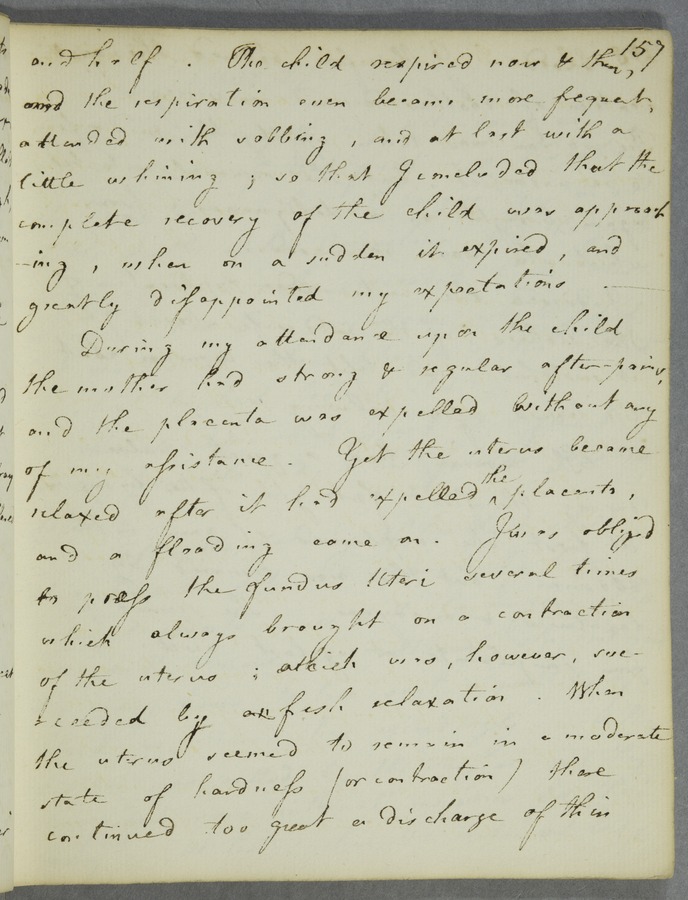 157
and half . The child respired now & then,
and the respiration even became more frequent,
attended with sobbing , and at last with a
little whining ; so that I concluded that the
complete recovery of the child was approach
-ing , when on a sudden it expired , and
greatly disappointed my expectations .
During my attendance upon the child
the mother had strong & regular after-pains,
and the placenta was expelled without any
of my assistance . Yet the uterus became
relaxed after it had expelled the placenta ,
and a flooding came on . I was obliged
to press the fundus Uteri several times
which always brought on a contraction
of the uterus ; which was , however , suc-
-ceeded by fresh relaxation . When
the uterus seemed to remain in a moderate
state of hardness (or contraction) there
continued too great a discharge of thin